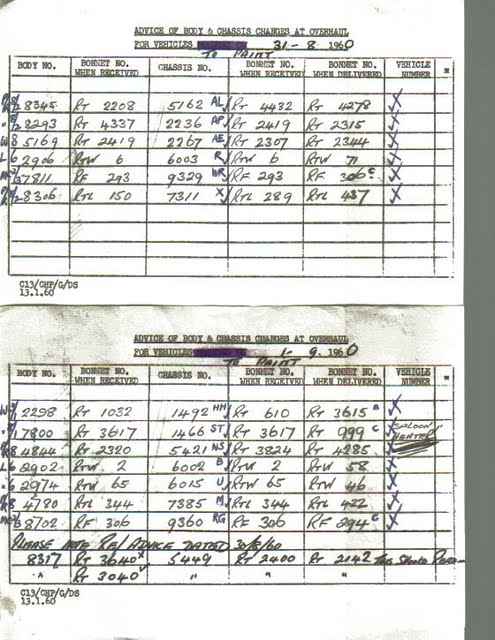 ADVICE OF BODY & CHASSIS CHANGES AT OVERHAUL
FOR VEHICLES 31-8. 1960
TO PAINT
BODY NO. BONNET NO. WHEN RECEIVED CHASSIS NO. BONNET NO. WHEN RECEIVED BONNET NO. WHEN DELIVERED VEHICLE NUMBER
8345 RT 2208 5162 AL RT 4432 RT 4278
8293 RT 4337 2236 AP RT 2419 RT 2315
5169 RT 2419 2267 AE RT 2307 RT 2344
2906 RTW 6 6003 R RTW 6 RTW 71
7811 RF 293 9329 WR RF 293 RF 306 C
8306 RTL 150 7311 X RTL 289 RTL 437
C13/CHP/G/DS
13.1.60
ADVICE OF BODY & CHASSIS CHANGES AT OVERHAUL
FOR VEHICLES 1- 9. 1960
TO PAINT
BODY NO. BONNET NO. WHEN RECEIVED CHASSIS NO. BONNET NO. WHEN RECEIVED BONNET NO. WHEN DELIVERED VEHICLE NUMBER
2298 RT 1032 1492 HH RT 610 RT 3615 B
7800 RT 3617 1466 ST RT 3617 RT 999 C SALOON HEATER
4844 RT 2320 5421 NS RT 3824 RT 4285
2902 RTW 2 6002 B RTW 2 RTW 58
2974 RTW 65 6015 U RTW 65 RTW 46
4780 RTL 344 7385 M RTL 344 RTL 422
8702 RF 306 9360 RG RF 306 RF 294 C
PLEASE NOTE RE/ ADVICE DATED 30/8/60
8317 RT 3640 X 5449 RT 2400 RT 2142 THIS SHOULD READ-
" RT 3040 " " "
C13/CHP/G/DS
13.1.60